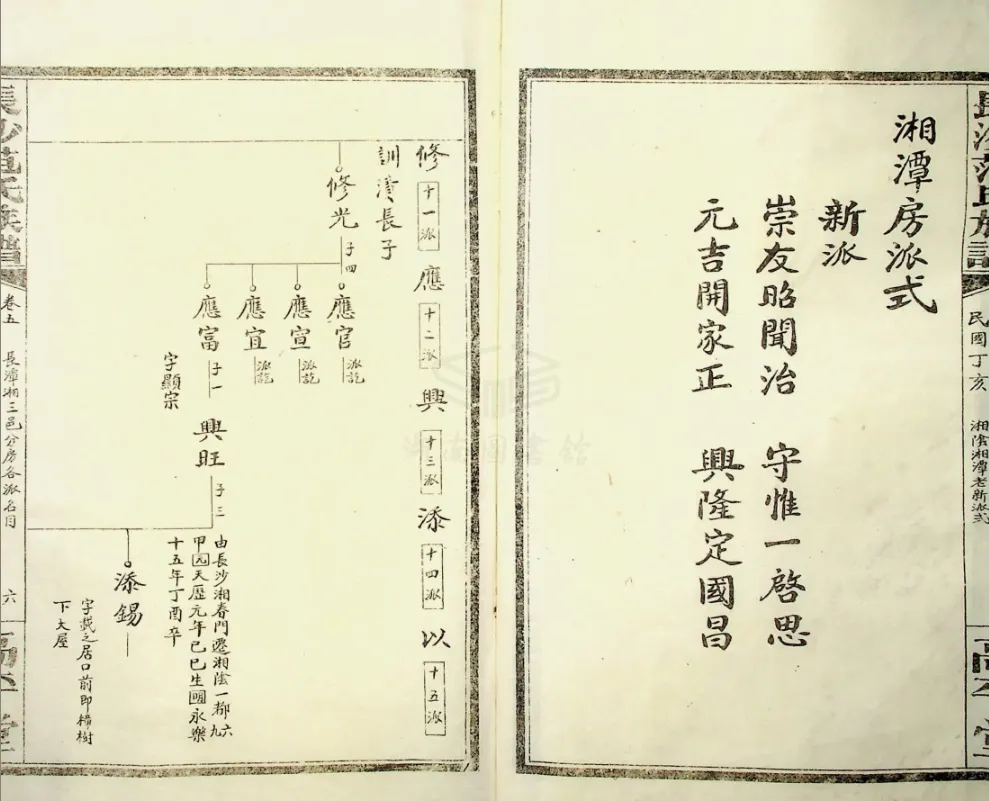 長沙范氏族譜
民國丁亥
湘陰湘潭老新派式
高平堂
湘潭房派式
新派
崇友昭聞治 守惟一啓思
元吉開家正 興隆定國昌
修 十一派 應 十二派 興 十三派 添 十四派 以 十五派
訓濱長子
修光 子四
應官 派詑
應宣 派詑
應宜 派詑
應富 子一
字顯宗
興旺 子三
由長沙湘春門遷湘陰一都六
甲元天歷元年己巳生國永樂
十五年丁酉卒
添錫
字載之居口前即樟樹
下大屋
長沙范氏族譜
卷五
長潭湘三邑分房各派名目
六
高平堂
湖南圖書館